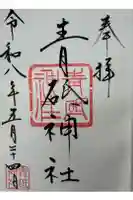 奉拝
青砥神社
令和八年五月二十四日